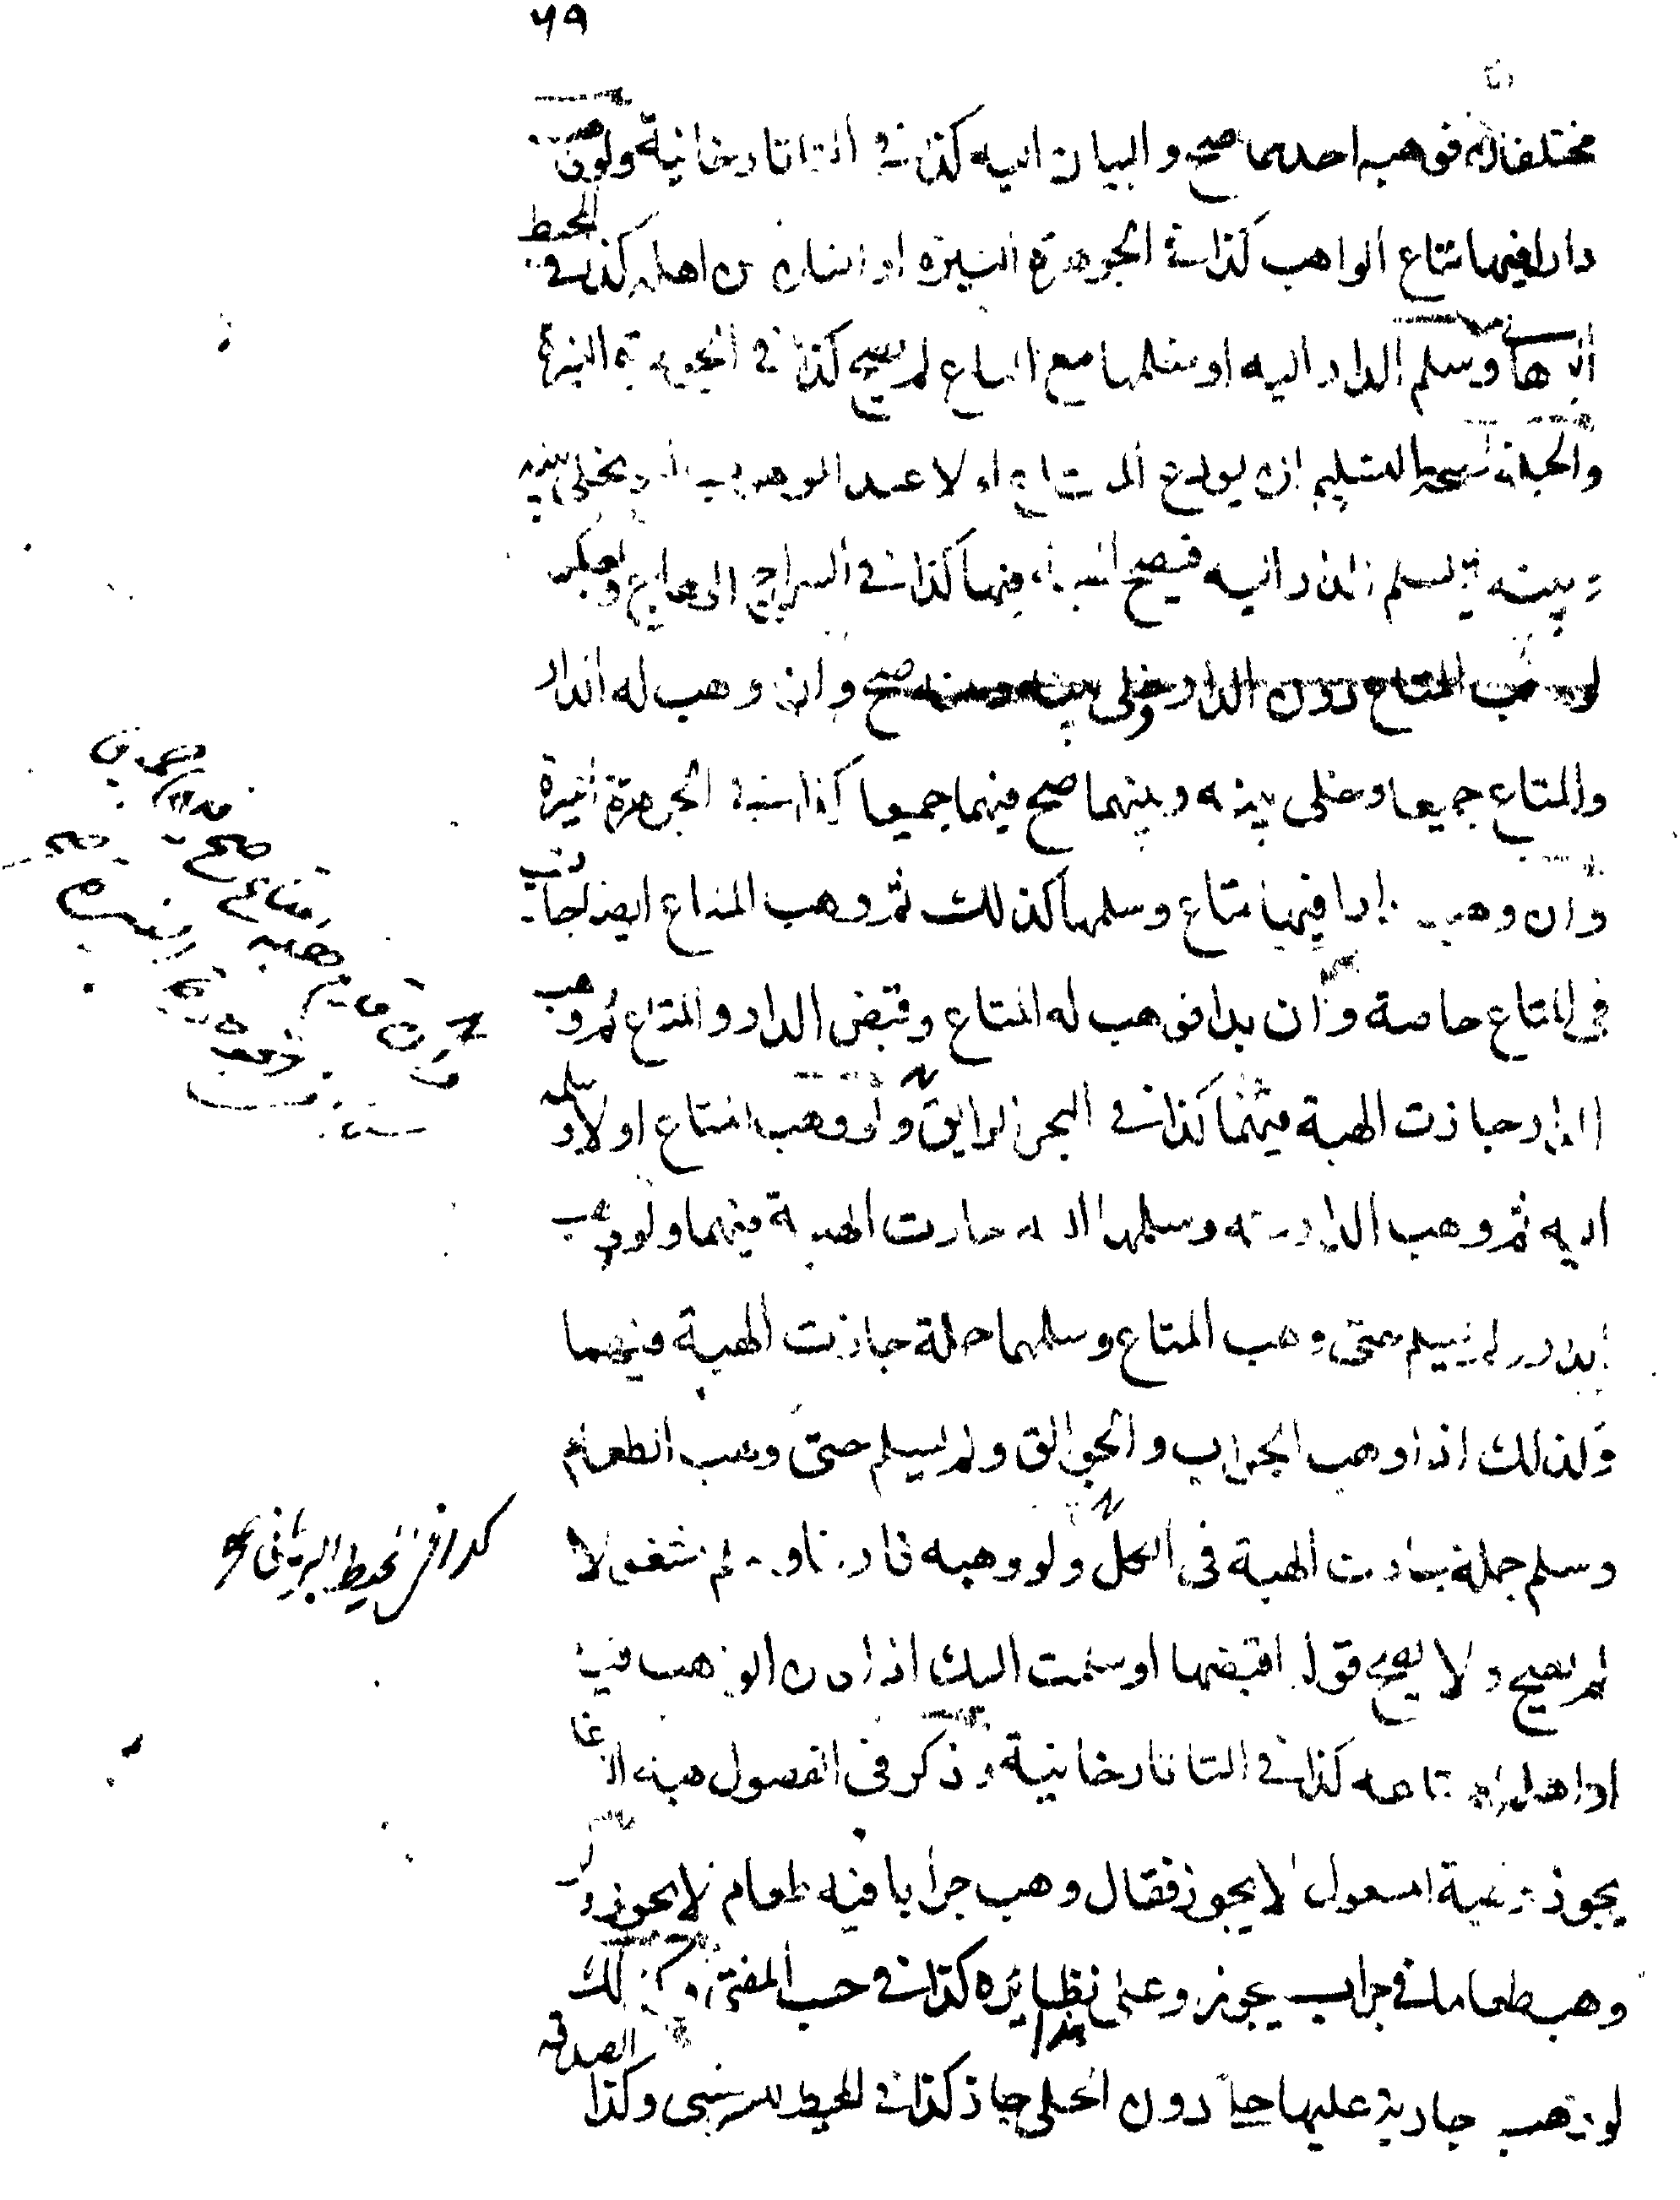 ٦٩
مختلفان فوهب احدهما صح والبيان اليه كذا في التاتارخانية ولو وهب
دارا فيها متاع الواهب كذا في الجوهرة النيرة او انسان من اهله كذا في المحيط
وسلم الدار اليه او سلمها مع المتاع لم يصح كذا في الجوهرة النيرة
والحيلة لصحة التسليم ان يودع المتاع اولا عند الموهوب له ويخلي بينه
وبينه ثم يسلم الدار اليه فيصح الهبة فيها كذا في السراج الوهاج وبعكسه
لو وهب المتاع دون الدار وخلى بينه وبينه صح وان وهب له الدار
والمتاع جميعا وخلى بينه وبينهما صح فيهما جميعا كذا في الجوهرة النيرة
وان وهب دارا فيها متاع وسلمها كذلك ثم وهب المتاع ايضا جازت
في المتاع خاصة وان بدا فوهب له المتاع وقبض الدار والمتاع ثم وهب
الدار جازت الهبة فيهما كذا في البحر الرايق ولو وهب المتاع اولا وسلمه
اليه ثم وهب الدار منه وسلمها اليه جازت الهبة فيهما ولو وهب
الدار ولم يسلم حتى وهب المتاع وسلمهما جملة جازت الهبة فيهما
وكذلك اذا وهب الجراب والجوالق ولم يسلم حتى وهب الطعام
وسلم جملة جازت الهبة في الكل ولو وهبه فارغا وسلم مشغولا
كذا في المحيط البرهاني
لم يصح ولا يصح قوله اقبضها او سلمت اليك اذا كان الواهب فيه
او اهله او متاعه كذا في التاتارخانية وذكر في الفصول هبة الشاغل
يجوز وهبة المشغول لا يجوز فقال وهب جرابا فيه طعام لا يجوز ولو
وهب طعاما في جراب يجوز وعلى هذا نظايره كذا في حسب المفتي وكذلك
لو وهب جارية عليها حلي دون الحلي جاز كذا في المحيط للسرخسي وكذا الصدقة